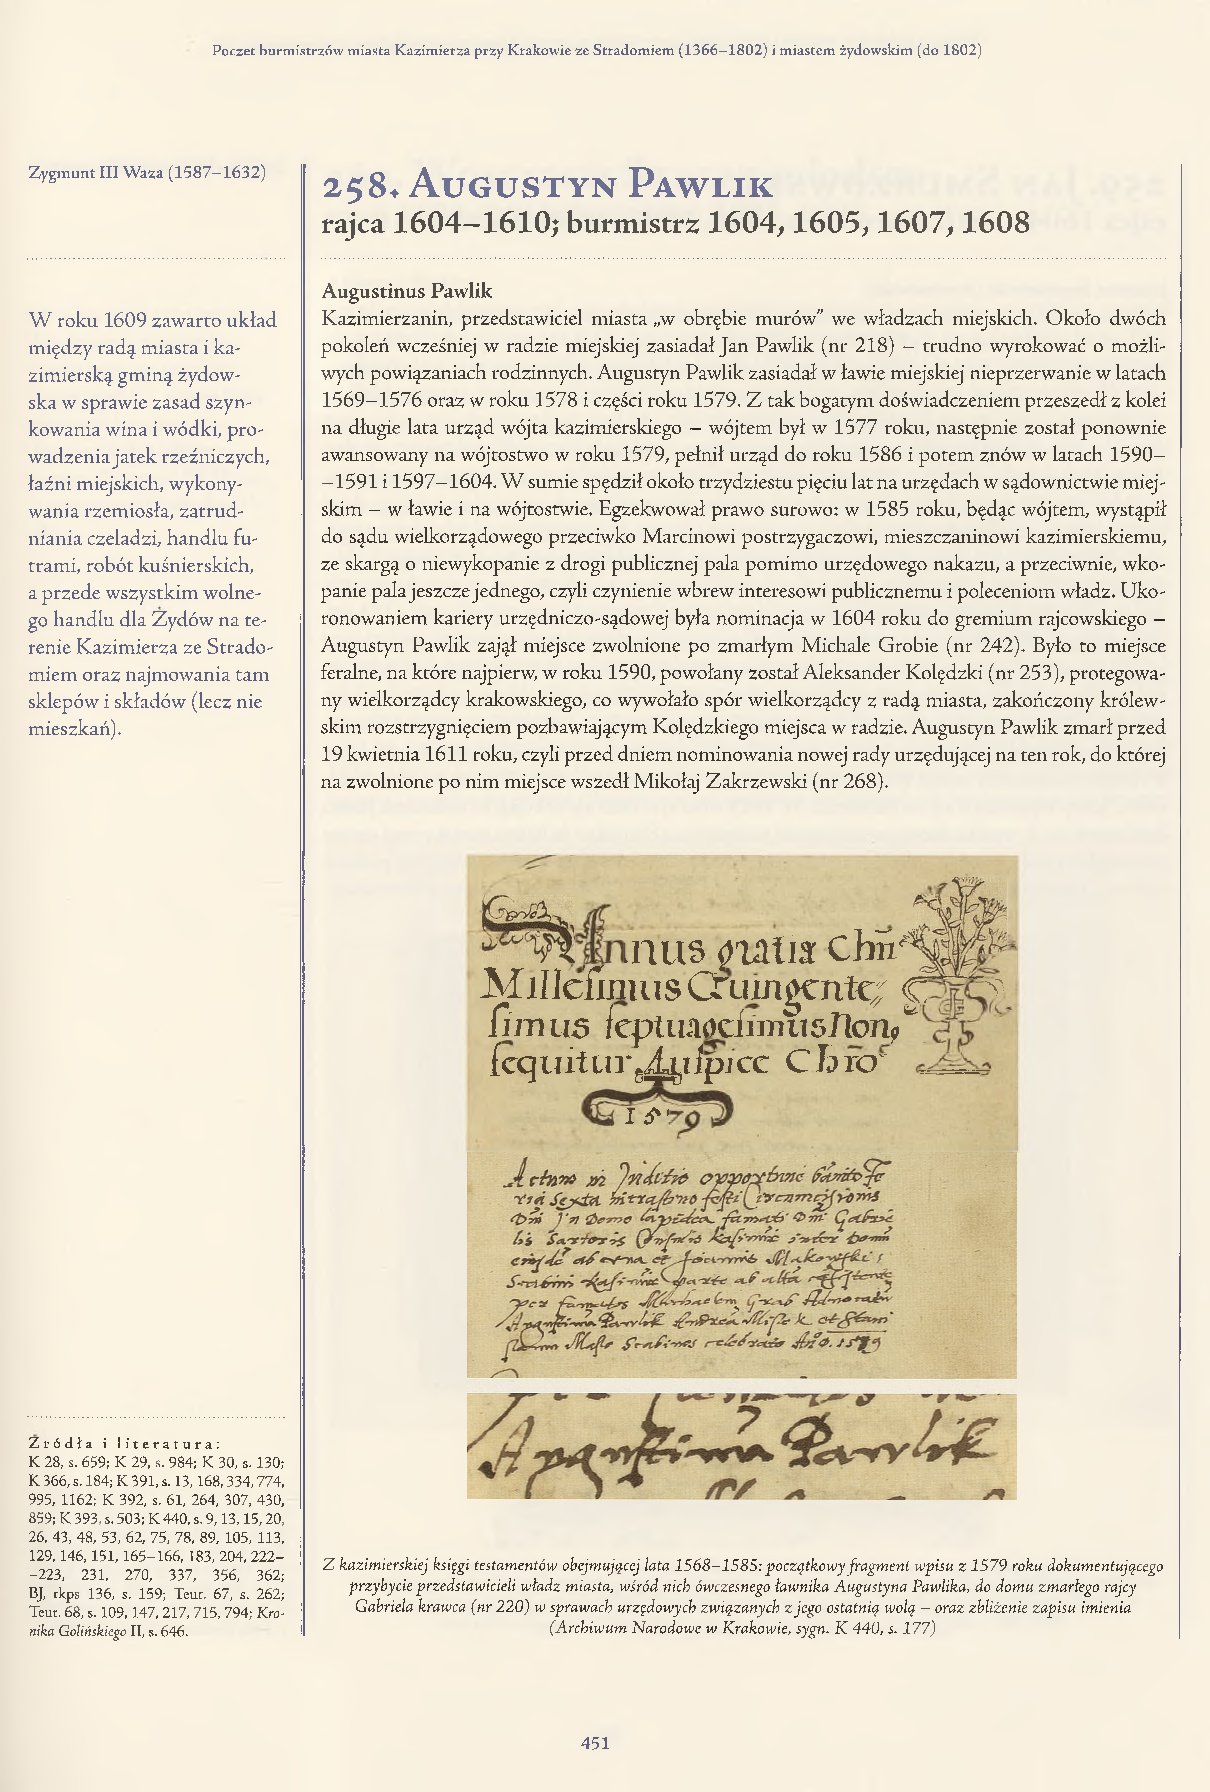 Poczet burmistrzów miasta Kazimierza przy Krakowie ze Stradomiem (1366–1802) i miastem żydowskim (do 1802)
Zygmunt III Waza (1587–1632)
W roku 1609 zawarto układ
między radą miasta i ka-
zimierską gminą żydow-
ska w sprawie zasad szyn-
kowania wina i wódki, pro-
wadzenia jatek rzeźniczych,
łaźni miejskich, wykony-
wania rzemiosła, zatrud-
niania czeladzi, handlu fu-
trami, robót kuśnierskich,
a przede wszystkim wolne-
go handlu dla Żydów na te-
renie Kazimierza ze Strado-
miem oraz najmowania tam
sklepów i składów (lecz nie
mieszkań).
Źródła i literatura:
K 28, s. 659; K 29, s. 984; K 30, s. 130;
K 366, s. 184; K 391, s. 13, 168, 334, 774,
995, 1162; K 392, s. 61, 264, 307, 430,
859; K 393, s. 503; K 440, s. 9, 13, 15, 20,
26, 43, 48, 53, 62, 75, 78, 89, 105, 113,
129, 146, 151, 165–166, 183, 204, 222–
–223, 231, 270, 337, 356, 362;
BJ, rkps 136, s. 159; Teut. 67, s. 262;
Teut. 68, s. 109, 147, 217, 715, 794; Kro-
nika Golińskiego II, s. 646.
258. Augustyn Pawlik
rajca 1604–1610; burmistrz 1604, 1605, 1607, 1608
Augustinus Pawlik
Kazimierzanin, przedstawiciel miasta „w obrębie murów" we władzach miejskich. Około dwóch
pokoleń wcześniej w radzie miejskiej zasiadał Jan Pawlik (nr 218) – trudno wyrokować o możli-
wych powiązaniach rodzinnych. Augustyn Pawlik zasiadał w ławie miejskiej nieprzerwanie w latach
1569–1576 oraz w roku 1578 i części roku 1579. Z tak bogatym doświadczeniem przeszedł z kolei
na długie lata urząd wójta kazimierskiego – wójtem był w 1577 roku, następnie został ponownie
awansowany na wójtostwo w roku 1579, pełnił urząd do roku 1586 i potem znów w latach 1590–
–1591 i 1597–1604. W sumie spędził około trzydziestu pięciu lat na urzędach w sądownictwie miej-
skim – w ławie i na wójtostwie. Egzekwował prawo surowo: w 1585 roku, będąc wójtem, wystąpił
do sądu wielkorządowego przeciwko Marcinowi postrzygaczowi, mieszczaninowi kazimierskiemu,
ze skargą o niewykopanie z drogi publicznej pala pomimo urzędowego nakazu, a przeciwnie, wko-
panie pala jeszcze jednego, czyli czynienie wbrew interesowi publicznemu i poleceniom władz. Uko-
ronowaniem kariery urzędniczo-sądowej była nominacja w 1604 roku do gremium rajcowskiego –
Augustyn Pawlik zajął miejsce zwolnione po zmarłym Michale Grobie (nr 242). Było to miejsce
feralne, na które najpierw, w roku 1590, powołany został Aleksander Kolędzki (nr 253), protegowa-
ny wielkorządcy krakowskiego, co wywołało spór wielkorządcy z radą miasta, zakończony królew-
skim rozstrzygnięciem pozbawiającym Kolędzkiego miejsca w radzie. Augustyn Pawlik zmarł przed
19 kwietnia 1611 roku, czyli przed dniem nominowania nowej rady urzędującej na ten rok, do której
na zwolnione po nim miejsce wszedł Mikołaj Zakrzewski (nr 268).
Annus gratiæ Chri
Millesimus Quingente
simus septuagesimus Non
sequitur Auspice Chro
1579
Augustinum Pawlik
Z kazimierskiej księgi testamentów obejmującej lata 1568–1585: początkowy fragment wpisu z 1579 roku dokumentującego
przybycie przedstawicieli władz miasta, wśród nich ówczesnego ławnika Augustyna Pawlika, do domu zmarłego rajcy
Gabriela krawca (nr 220) w sprawach urzędowych związanych z jego ostatnią wolą – oraz zbliżenie zapisu imienia
(Archiwum Narodowe w Krakowie, sygn. K 440, s. 177)
451